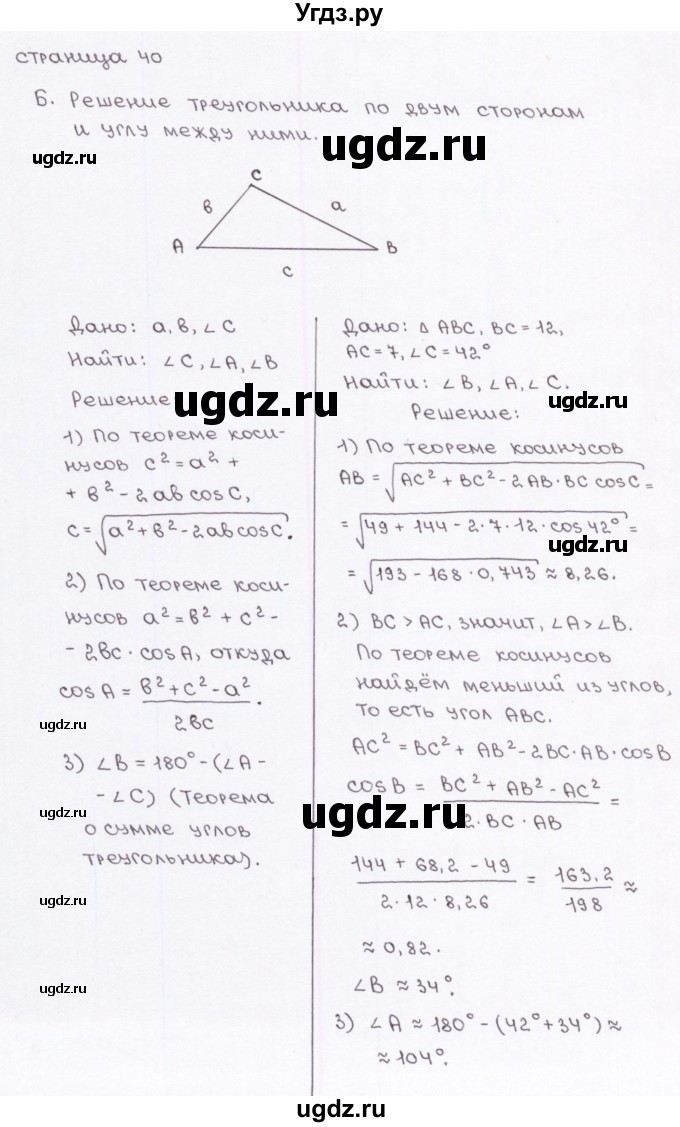 Угдз.ру
страница 40
Б. Решение треугольника по двум сторонам
и углу между ними.
ugdz.ru
ugdz.ru
C
в
a
A
B
c
Дано: a, в, ∠C
Найти: ∠C, ∠A, ∠B
Решение
ugdz.ru
1) По теореме коси-
нусов c² = a² +
+ в² - 2ab cos C,
c = √(a² + в² - 2ab cos C).
2) По теореме коси-
нусов a² = в² + c² -
- 2вc · cos A, откуда
cos A = (в² + c² - a²)/(2вc).
ugdz.ru
ugdz.ru
3) ∠B = 180° - (∠A -
- ∠C) (теорема
о сумме углов
треугольника).
ugdz.ru
ugdz.ru
ugdz.ru
Дано: △ ABC, BC = 12,
AC = 7, ∠C = 42°
Найти: ∠B, ∠A, ∠C.
ugdz.ru
Решение:
1) По теореме косинусов
AB = √(AC² + BC² - 2AB · BC cos C) =
= √(49 + 144 - 2 · 7 · 12 · cos 42°) =
ugdz.ru
= √(193 - 168 · 0,743) ≈ 8,26.
2) BC > AC, значит, ∠A > ∠B.
По теореме косинусов
найдём меньший из углов,
то есть угол ABC.
ugdz.ru
AC² = BC² + AB² - 2BC · AB · cos B
cos B = (BC² + AB² - AC²)/(2 · BC · AB) =
ugdz.ru
(144 + 68,2 - 49)/(2 · 12 · 8,26) = 163,2/198 ≈
≈ 0,82.
∠B ≈ 34°.
ugdz.ru
3) ∠A ≈ 180° - (42° + 34°) ≈
≈ 104°.
ugdz.ru